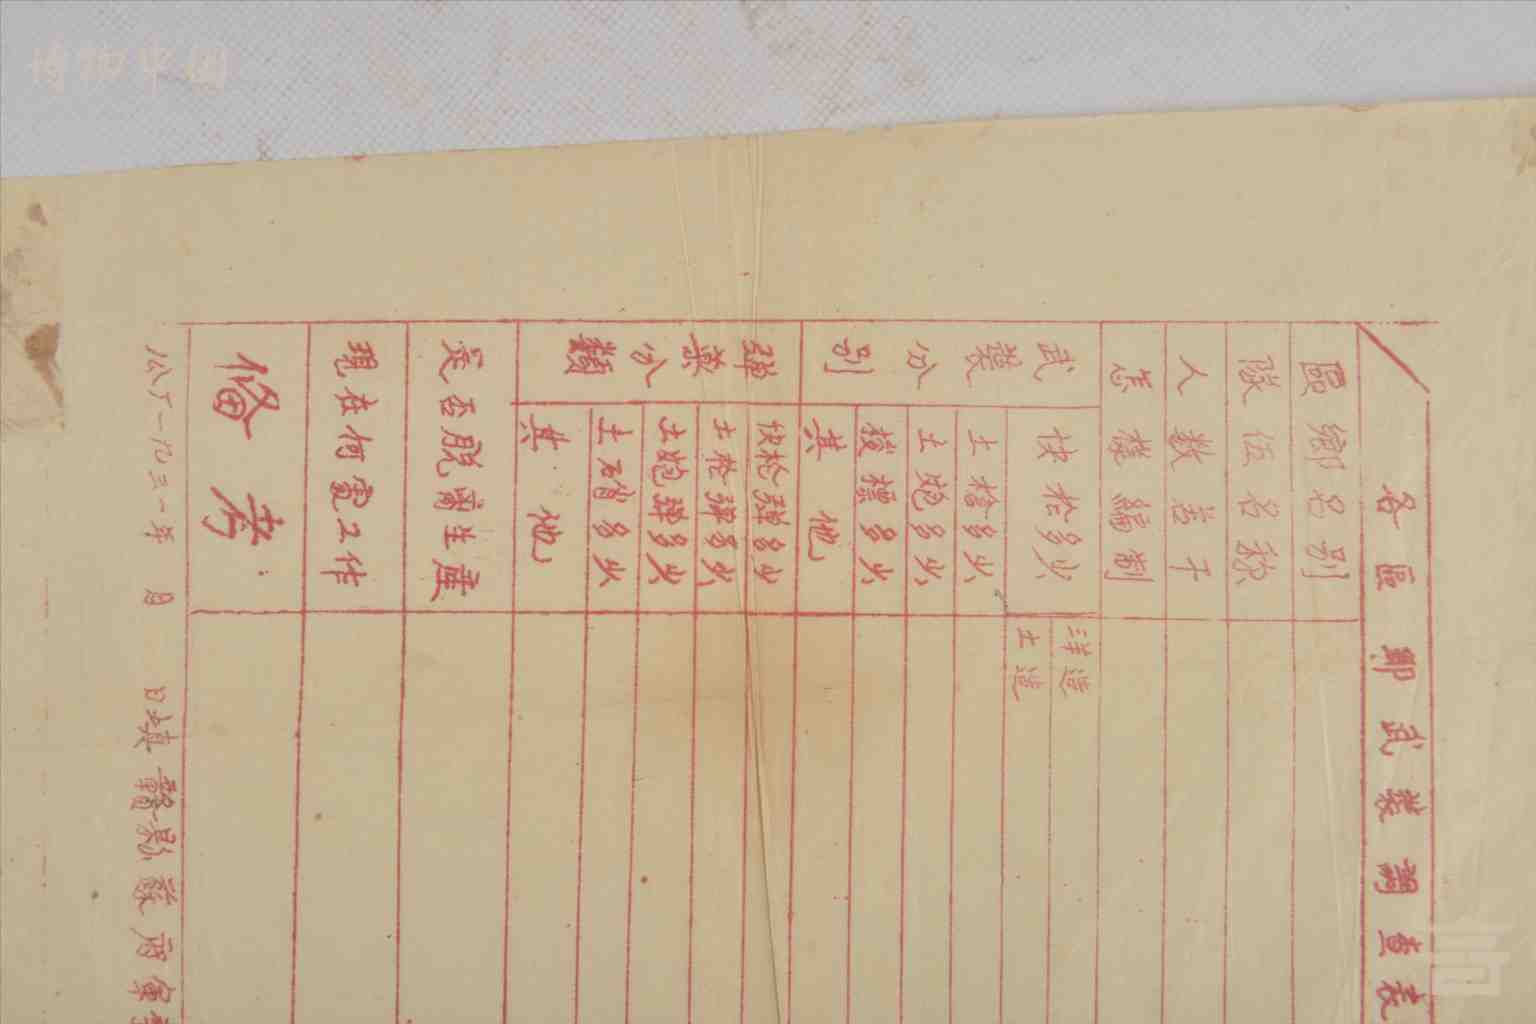 博物中国
各區鄉武裝調查表
區鄉名別
隊伍名称
人数若干
怎樣編制
武裝分別
快枪多少
洋造
土造
土枪多少
土炮多少
梭標多少
其他
彈藥分類
快枪彈多少
土枪彈多少
土炮彈多少
土硝多少
其他
是否脱离生產
現在何處工作
備考
公历一九三一年 月 日填 贛縣蘇府軍